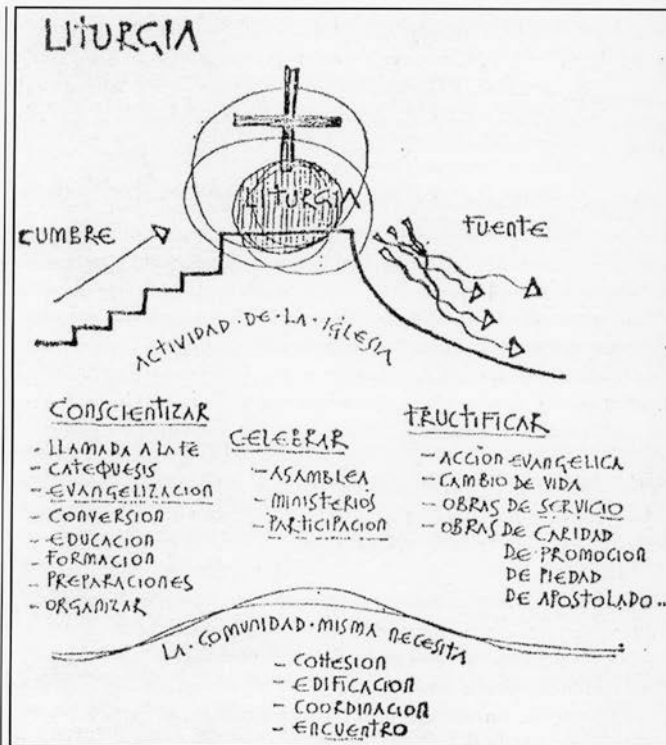 LITURGIA
LITURGIA
CUMBRE
FUENTE
ACTIVIDAD·DE·LA·IGLESIA
CONSCIENTIZAR
- LLAMADA A LA FE
- CATEQUESIS
- EVANGELIZACION
- CONVERSION
- EDUCACION
- FORMACION
- PREPARACIONES
- ORGANIZAR
CELEBRAR
- ASAMBLEA
- MINISTERIOS
- PARTICIPACION
FRUCTIFICAR
- ACCION EVANGELICA
- CAMBIO DE VIDA
- OBRAS DE SERVICIO
- OBRAS DE CARIDAD
DE PROMOCION
DE PIEDAD
DE APOSTOLADO...
LA·COMUNIDAD·MISMA NECESITA
- COHESION
- EDIFICACION
- COORDINACION
- ENCUENTRO